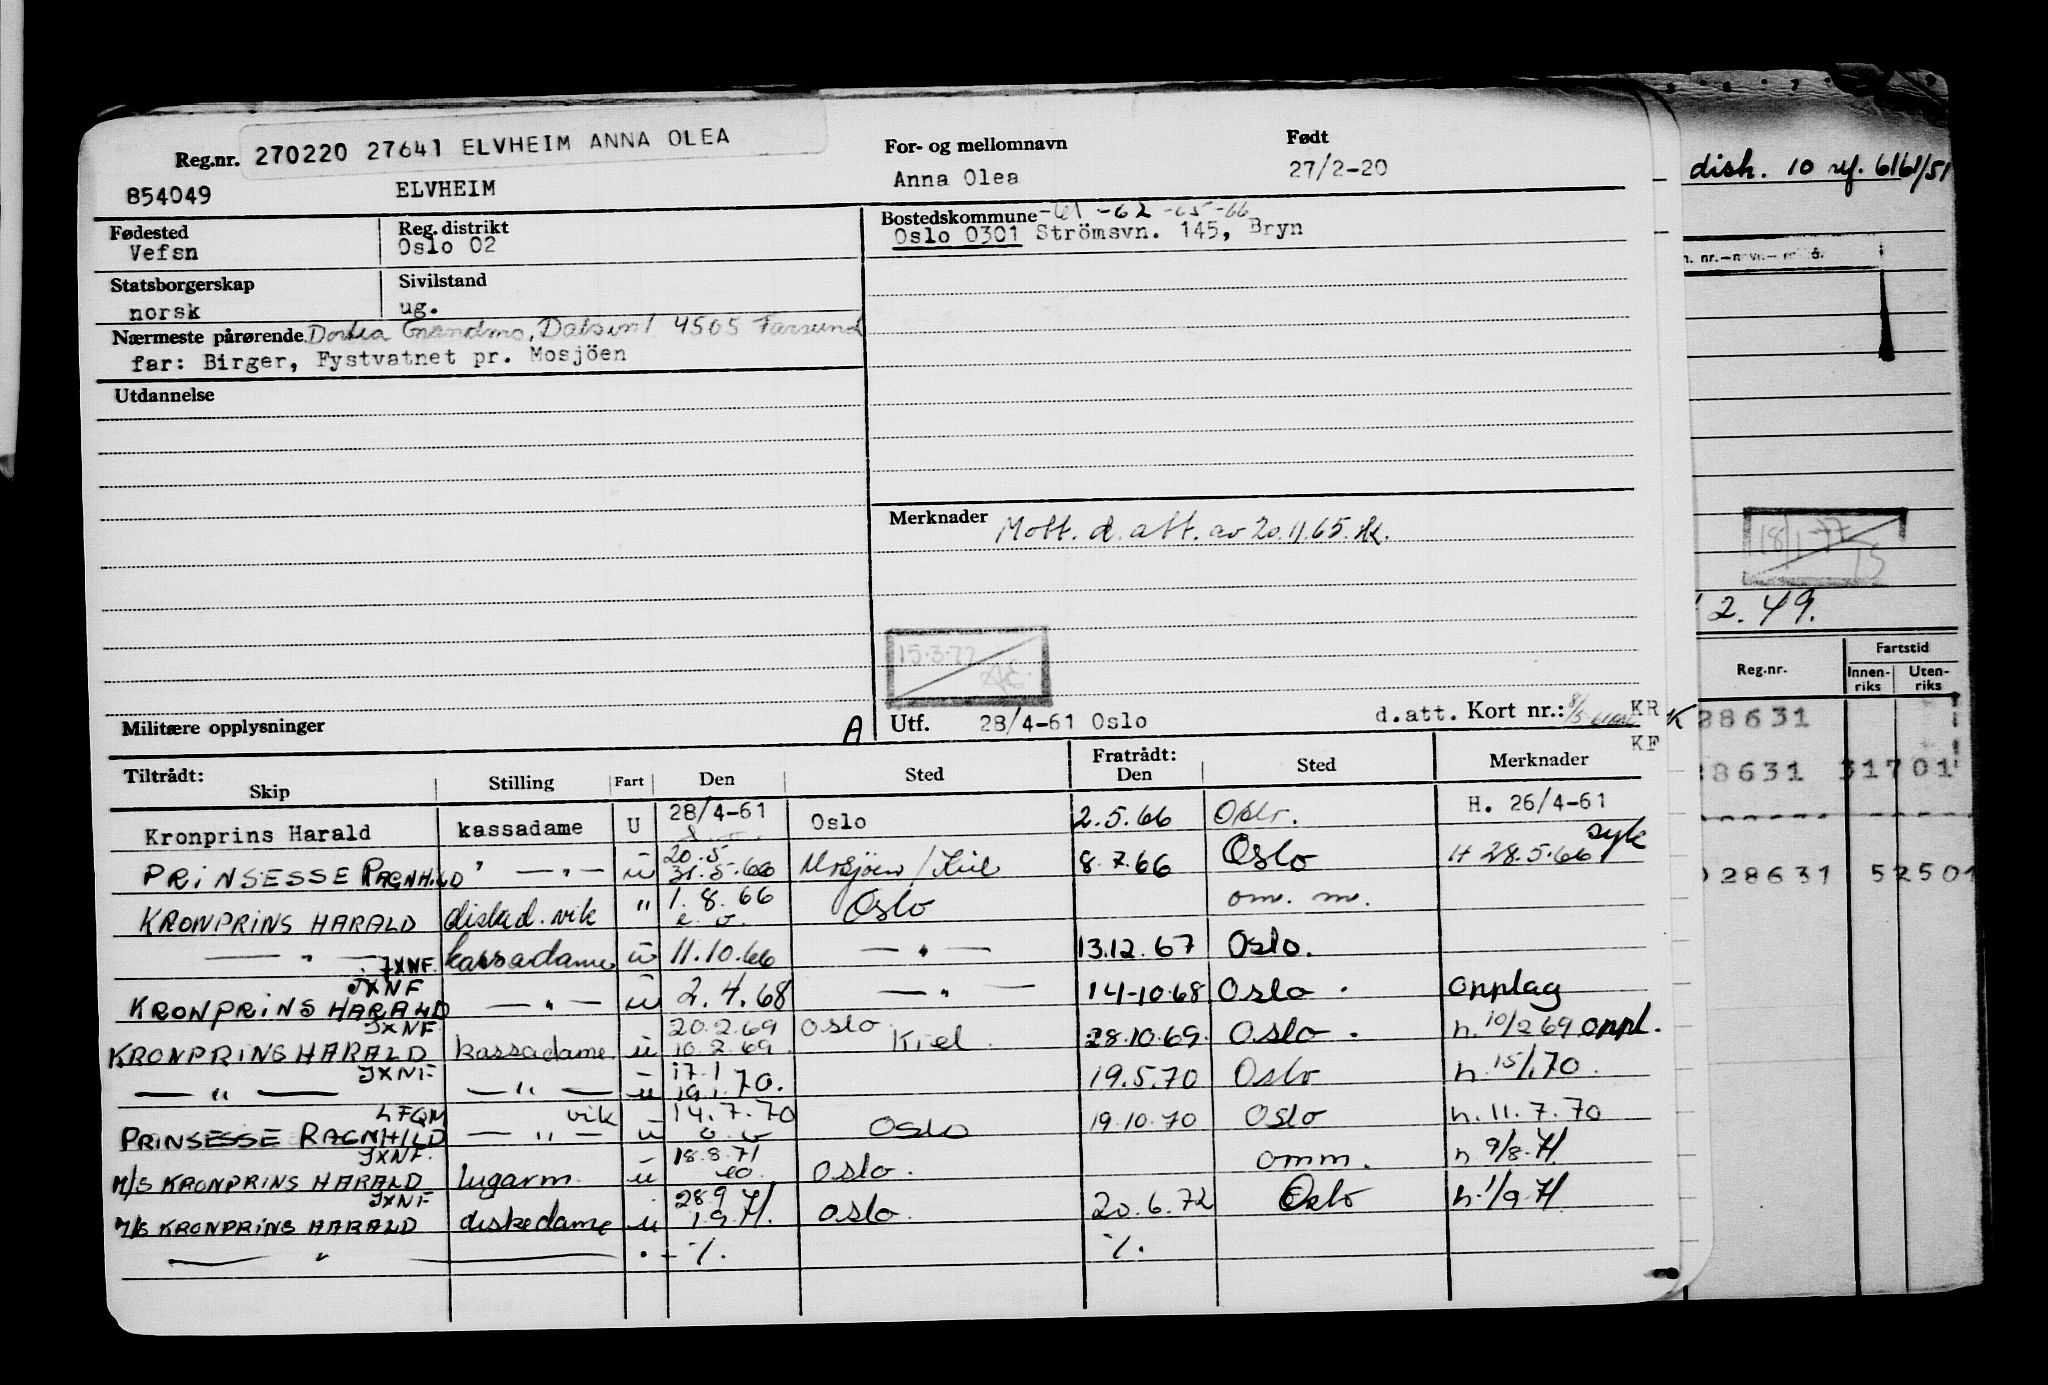 Reg.nr. 270220 27641 ELVHEIM ANNA OLEA
For- og mellomnavn
Født
854049 ELVHEIM Anna Olea 27/2-20
Fødested
Vefsn
Reg. distrikt
Oslo 02
Bostedskommune -61 -62 -65 -66
Oslo 0301 Strömsvn. 145, Bryn
Statsborgerskap
norsk
Sivilstand
ug.
Nærmeste pårørende 4505 Farsund
far: Birger, Fystvatnet pr. Mosjöen
Utdannelse
Merknader Mott. d. att. av 20.11.65.
15.3.77
Militære opplysninger
A Utf. 28/4-61 Oslo d.att. Kort nr.: KR
KF
Tiltrådt: Fratrådt:
Skip Stilling Fart Den Sted Den Sted Merknader
Kronprins Harald kassadame U 28/4-61 Oslo 2.5.66 Oslo. H. 26/4-61
20.5
PRINSESSE RAGNHILD " — " — u 31.5.66 Mosjöen / Kiel 8.7.66 Oslo H 28.5.66 syk
KRONPRINS HARALD disked. vik " 1.8.66 Oslo om. m.
— " — JXNF. kassadame u 11.10.66 — " — 13.12.67 Oslo.
JXNF
KRONPRINS HARALD — " — u 2.4.68 — " — 14-10-68 Oslo. opplag
JXNF 20.2.69 Oslo
KRONPRINS HARALD kassadame. u 10.2.69. Kiel. 28.10.69. Oslo. h. 10/2 69 oppl.
JXNF 17.1
— " — — " — u 19.1.70. 19.5.70 Oslo h. 15/1.70.
LFQM vik 14.7.70
PRINSESSE RAGNHILD — " — u Oslo 19.10.70 Oslo h. 11.7.70
JXNF. 18.8.71
M/S KRONPRINS HARALD lugarm. u Oslo. omm. h 9/8.71.
JXNF 28.9.71
M/S KRONPRINS HARALD diskedame u 1.9.71. Oslo. 20.6.72 Oslo h. 1/9.71
— " —
disk. 10 rf. 6161/51
18/1-77
2.49.
Reg.nr. Fartstid
Innen-riks Uten-riks
28631
28631 31701
28631 52501